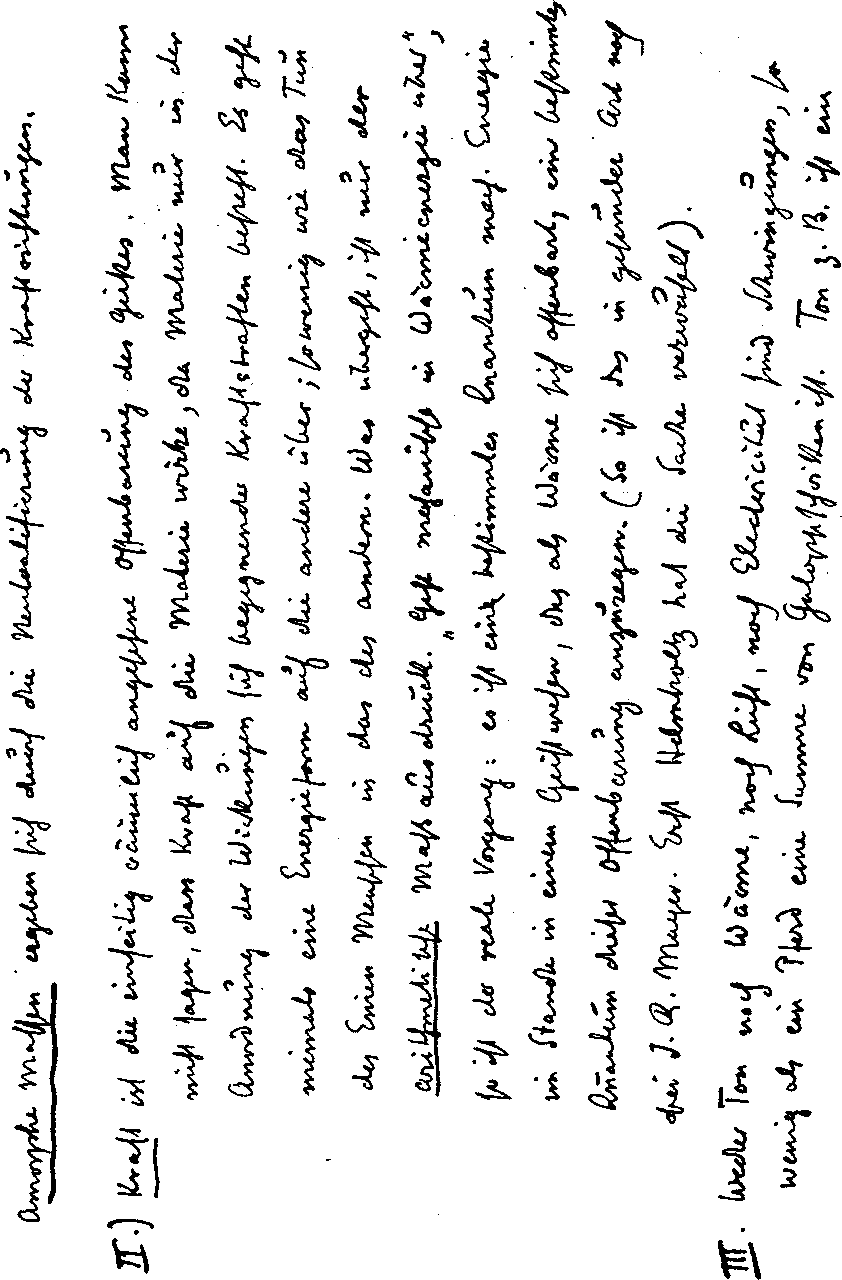 Amorphe Massen ergeben sich durch die Neutralisierung der Kraftrichtungen.
II.) Kraft ist die einseitig räumlich angesehene Offenbarung des Geistes. Man kann
nicht sagen, dass Kraft auf die Materie wirke, da Materie nur in der
Anordnung der Wirkungen sich begegnender Kraftstrahlen besteht. Es geht
niemals eine Energieform auf die andere über; sowenig wie das Tun
des Einen Menschen in das des andern. Was übergeht, ist nur der
arithmetische Maßausdruck. „Geht mechanische in Wärmeenergie über",
so ist der reale Vorgang: es ist eine bestimmtes Quantum mech. Energie
im Stande in einem Geistwesen, das als Wärme sich offenbart, ein bestimmtes
Quantum dieser Offenbarung anzuregen. (So ist das in gesunder Art noch
bei J. R. Mayer. Erst Helmholtz hat die Sache verwurstelt).
III. Weder Ton noch Wärme, noch Licht, noch Electricität sind Schwingungen, so
wenig als ein Pferd eine Summe von Galoppschritten ist. Ton z. B. ist ein